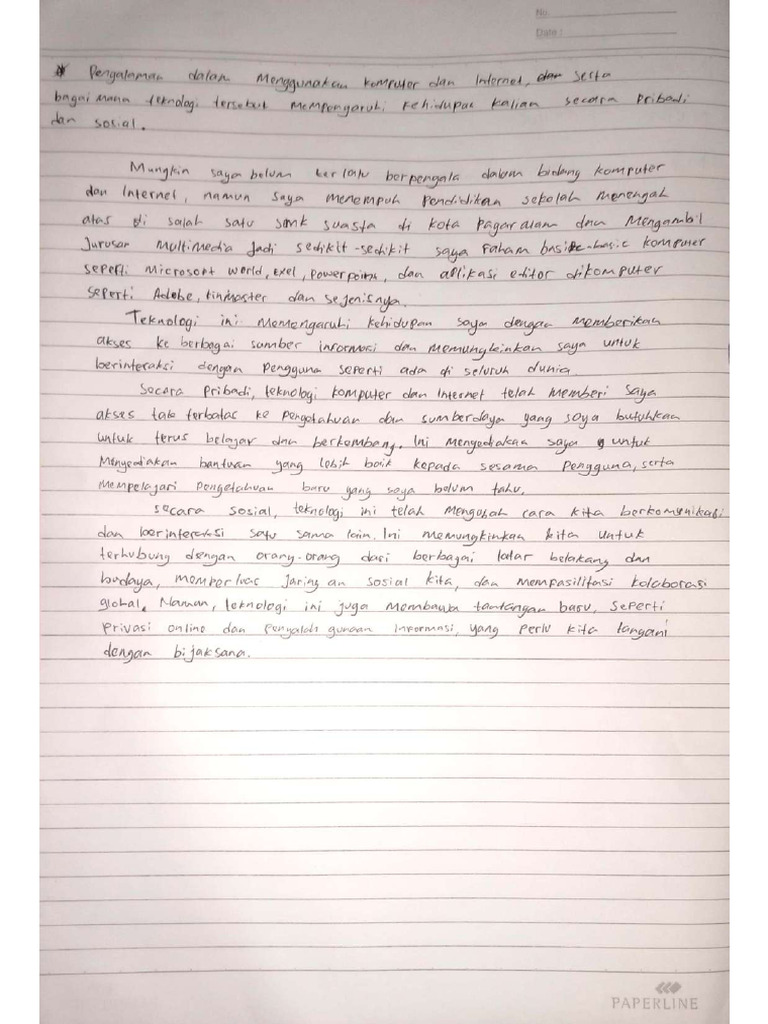 No
Date :
* Pengalaman dalam Menggunakan komputer dan Internet, dan serta
bagai mana teknologi tersebut mempengaruhi kehidupan kalian secara pribadi
dan sosial.
Mungkin saya belum terlalu berpengala dalam bidang komputer
dan Internet, namun saya menempuh pendidikan sekolah menengah
atas di salah satu smk suasta di kota pagaralam dan Mengambil
jurusan Multimedia Jadi sedikit-sedikit saya paham basic-basic komputer
seperti Microsoft world, exel, powerpoint, dan aplikasi editor dikomputer
seperti Adobe, kinmaster dan sejenisnya.
Teknologi ini memengaruhi kehidupan saya dengan memberikan
akses ke berbagai sumber informasi dan memungkinkan saya untuk
berinteraksi dengan pengguna seperti ada di seluruh dunia.
Secara Pribadi, teknologi komputer dan Internet telah memberi saya
akses tak terbatas ke pengetahuan dan sumberdaya yang saya butuhkan
untuk terus belajar dan berkembang. Ini Menyediakan saya untuk
Menyediakan bantuan yang lebih baik kepada sesama pengguna, serta
mempelajari pengetahuan baru yang saya belum tahu.
secara sosial, teknologi ini telah mengubah cara kita berkomunikasi
dan berinteraksi satu sama lain. Ini memungkinkan kita untuk
terhubung dengan orang-orang dari berbagai latar belakang dan
budaya, memperluas jaringan sosial kita, dan mempasilitasi kolaborasi
global. Namun, teknologi ini juga membawa tantangan baru, seperti
privasi online dan penyalah gunaan informasi, yang perlu kita tangani
dengan bijaksana.
PAPERLINE